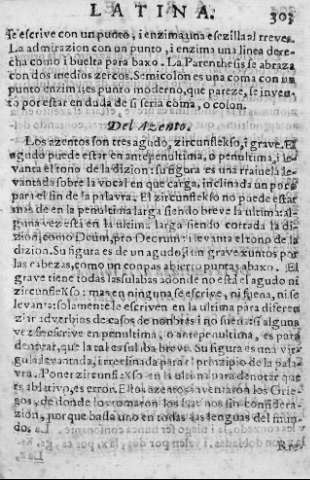 LATINA. 303
se escrive con un punto, i enzima una esczilla al rreves.
La admirazion con un punto, i enzima una linea dere-
cha como i buelta para baxo. La Parenthesis se abraza
con dos medios zercos. Semicolon es una coma con un
punto enzima es punto moderno, que pareze, se inven-
to por estar en duda de si seria coma, o colon.
Del Azento.
Los azentos son tres agudo, zircunflekso, i grave. El
agudo puede estar en antepenultima, o penultima, i le-
vanta el tono de la dizion: su figura es una rraiuela le-
vantada sobre la vocal en que carga, inclinada un poco
para el fin de la palavra. El zircunflekso no puede estar
mas de en la penultima larga siendo breve la ultima: al-
guna vez està en la ultima larga siendo cortada la di-
zion, como Deum, pro Deorum: i levanta el tono de la
dizion. Su figura es de un agudo, i un grave xuntos por
las cabezas, como un conpas abierto puntas abaxo. El
grave tiene todas las sulabas adonde no està el agudo ni
zircunflekso: mas en ninguna se escrive, ni suena, ni se
levanta: solamente le escriven en la ultima para diferen
ziar adverbios de casos de nonbres i no suena: si alguna
vez se escrive en penultima, o antepenultima, es para
denotar, que la tal es sulaba breve. Su figura es una vir-
gula levantada, i rreclinada para el prinzipio de la pala-
vra. Poner zircunflekso en la ultima para denotar que
es ablativo, es error. Estos azentos inventaron los Grie-
gos, de donde los tomaron los latinos sin conside-
razion, porque basta uno en todas las lenguas del mun-
do.
Rre-